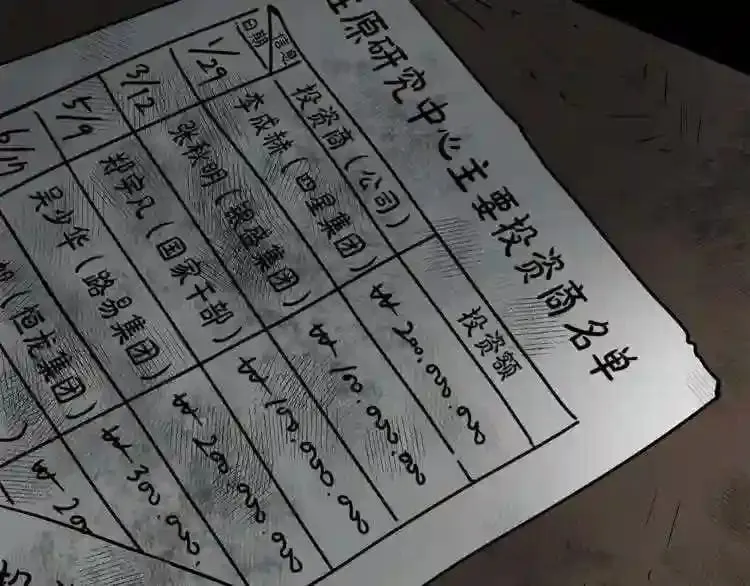 原研究中心主要投资商名单
信息
日期
投资商(公司)
投资额
1/29
李成赫(四星集团)
₩200.000.000
3/12
张秋明(银盛集团)
₩100.000.000
5/9
郑宇凡(国家干部)
₩100.000.000
6/17
吴少华(路易集团)
₩200.000.000
(恒龙集团)
₩300.000.
₩200